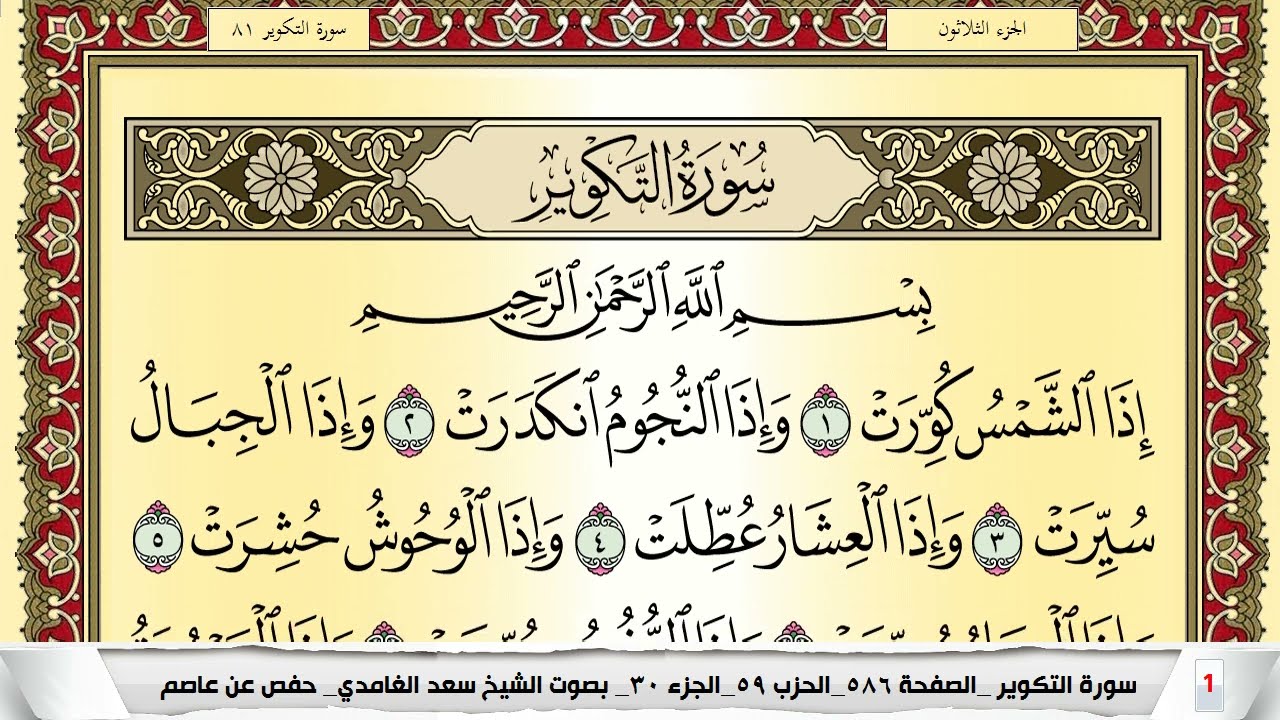 الجزء الثلاثون
سورة التكوير ٨١
سُورَةُ التَّكْوِيرِ
بِسْمِ ٱللَّهِ ٱلرَّحْمَٰنِ ٱلرَّحِيمِ
إِذَا ٱلشَّمْسُ كُوِّرَتْ ١ وَإِذَا ٱلنُّجُومُ ٱنكَدَرَتْ ٢ وَإِذَا ٱلْجِبَالُ
سُيِّرَتْ ٣ وَإِذَا ٱلْعِشَارُ عُطِّلَتْ ٤ وَإِذَا ٱلْوُحُوشُ حُشِرَتْ ٥
سورة التكوير _الصفحة ٥٨٦_الحزب ٥٩_الجزء ٣٠_ بصوت الشيخ سعد الغامدي_ حفص عن عاصم
1